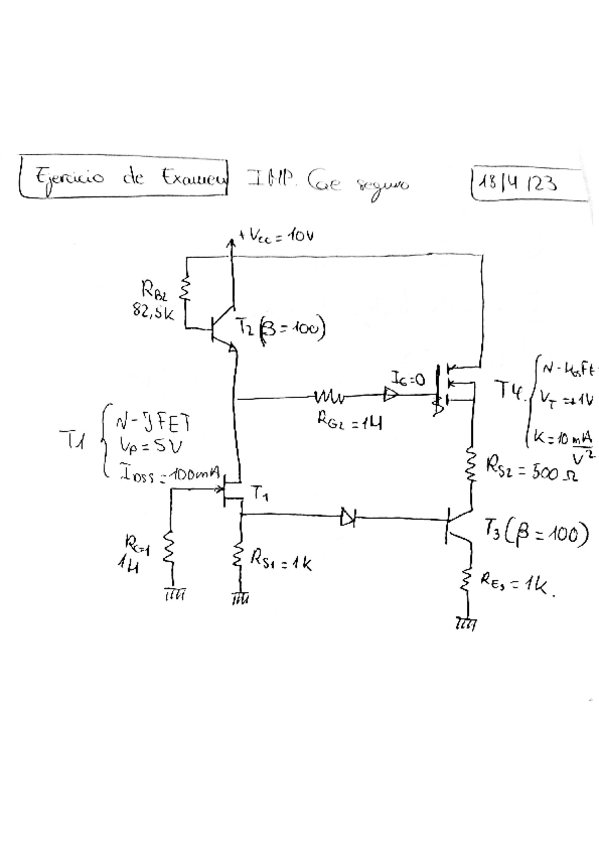 Ejercicio de Examen IMP. Cae seguro
18/4/23
+Vcc = 10V
RB2
82,5K
T2 (β = 100)
IG=0
RG2 = 1M
T4
N-MosFet
VT = +1V
K = 10 mA/V²
T1
N-JFET
Vp = 5V
IDSS = 100mA
T1
RS2 = 500 Ω
T3 (β = 100)
RG1
1M
RS1 = 1K
RE3 = 1K.